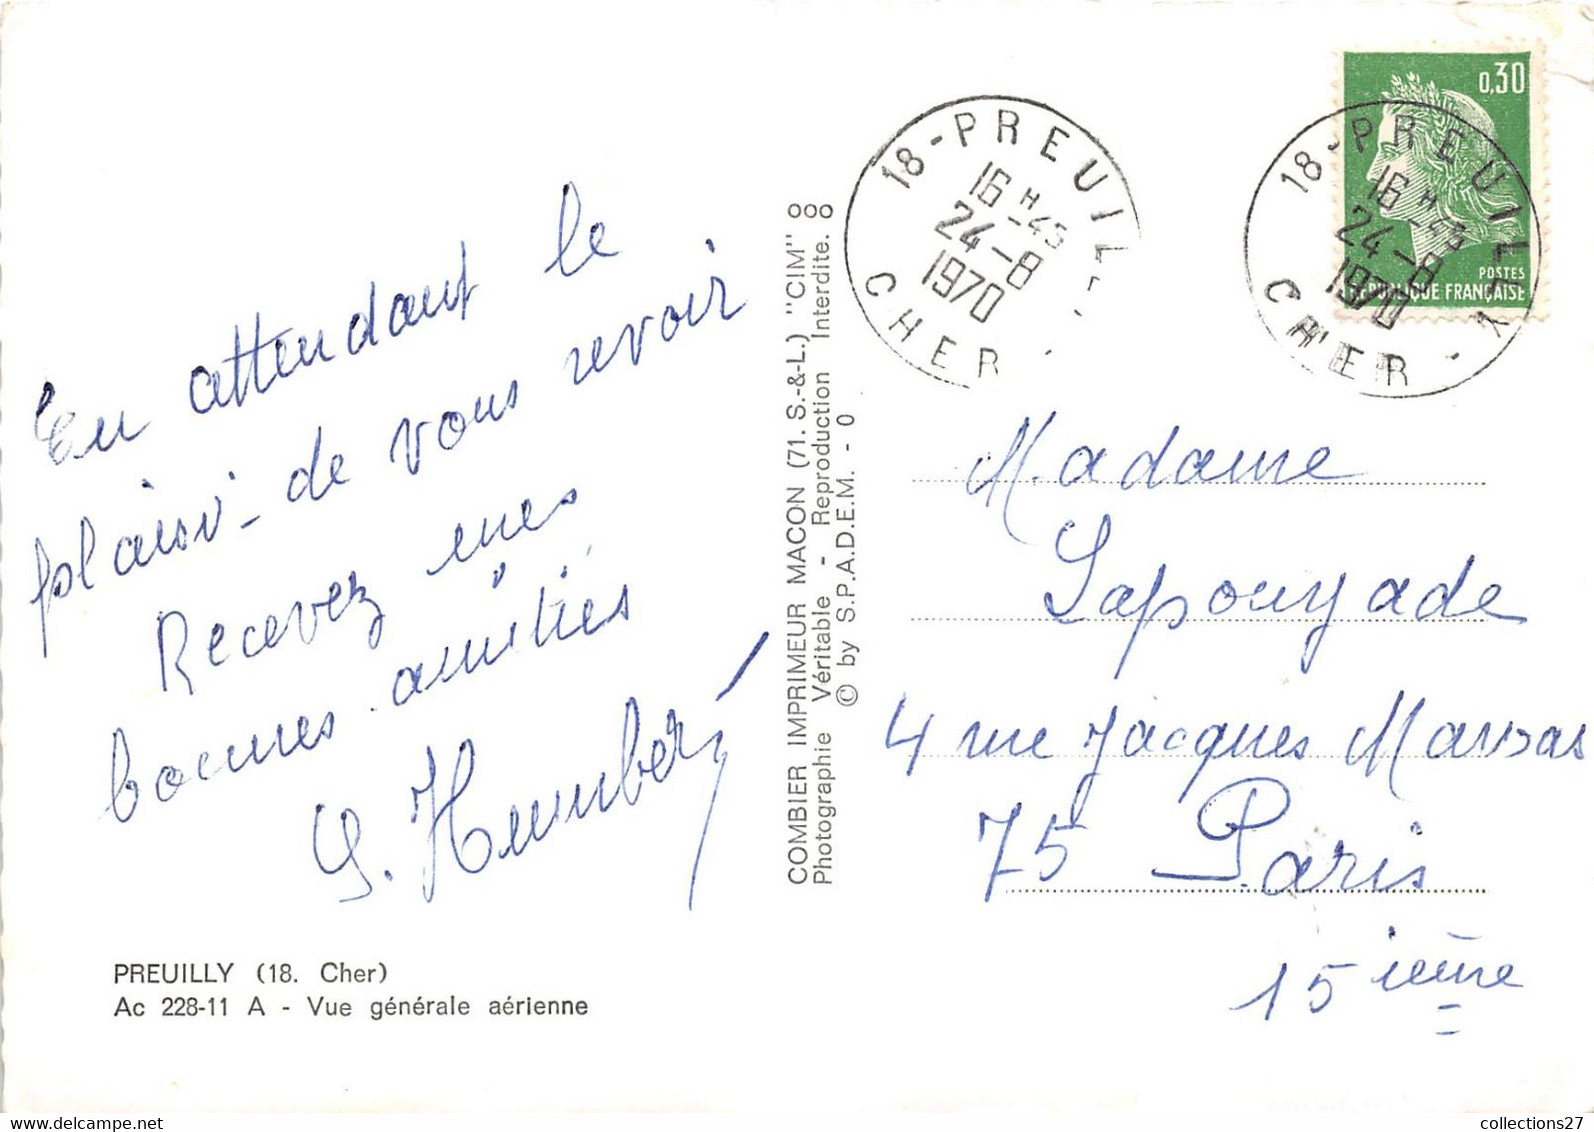 En attendant le
plaisir de vous revoir
Recevez mes
bonnes amitiés
G. Humbert
PREUILLY (18. Cher)
Ac 228-11 A - Vue générale aérienne
COMBIER IMPRIMEUR MACON (71. S.-&-L.) "CIM"
Photographie Véritable - Reproduction Interdite.
© by S.P.A.D.E.M. - 0
18-PREUIL
16 H -45
24-8
1970
CHER
0,30
POSTES
RÉPUBLIQUE FRANÇAISE
18-PREUILLY
16 H -45
24-8
1970
CHER
Madame
Lapouyade
4 rue Jacques Mawas
75 Paris
15ième
collections27